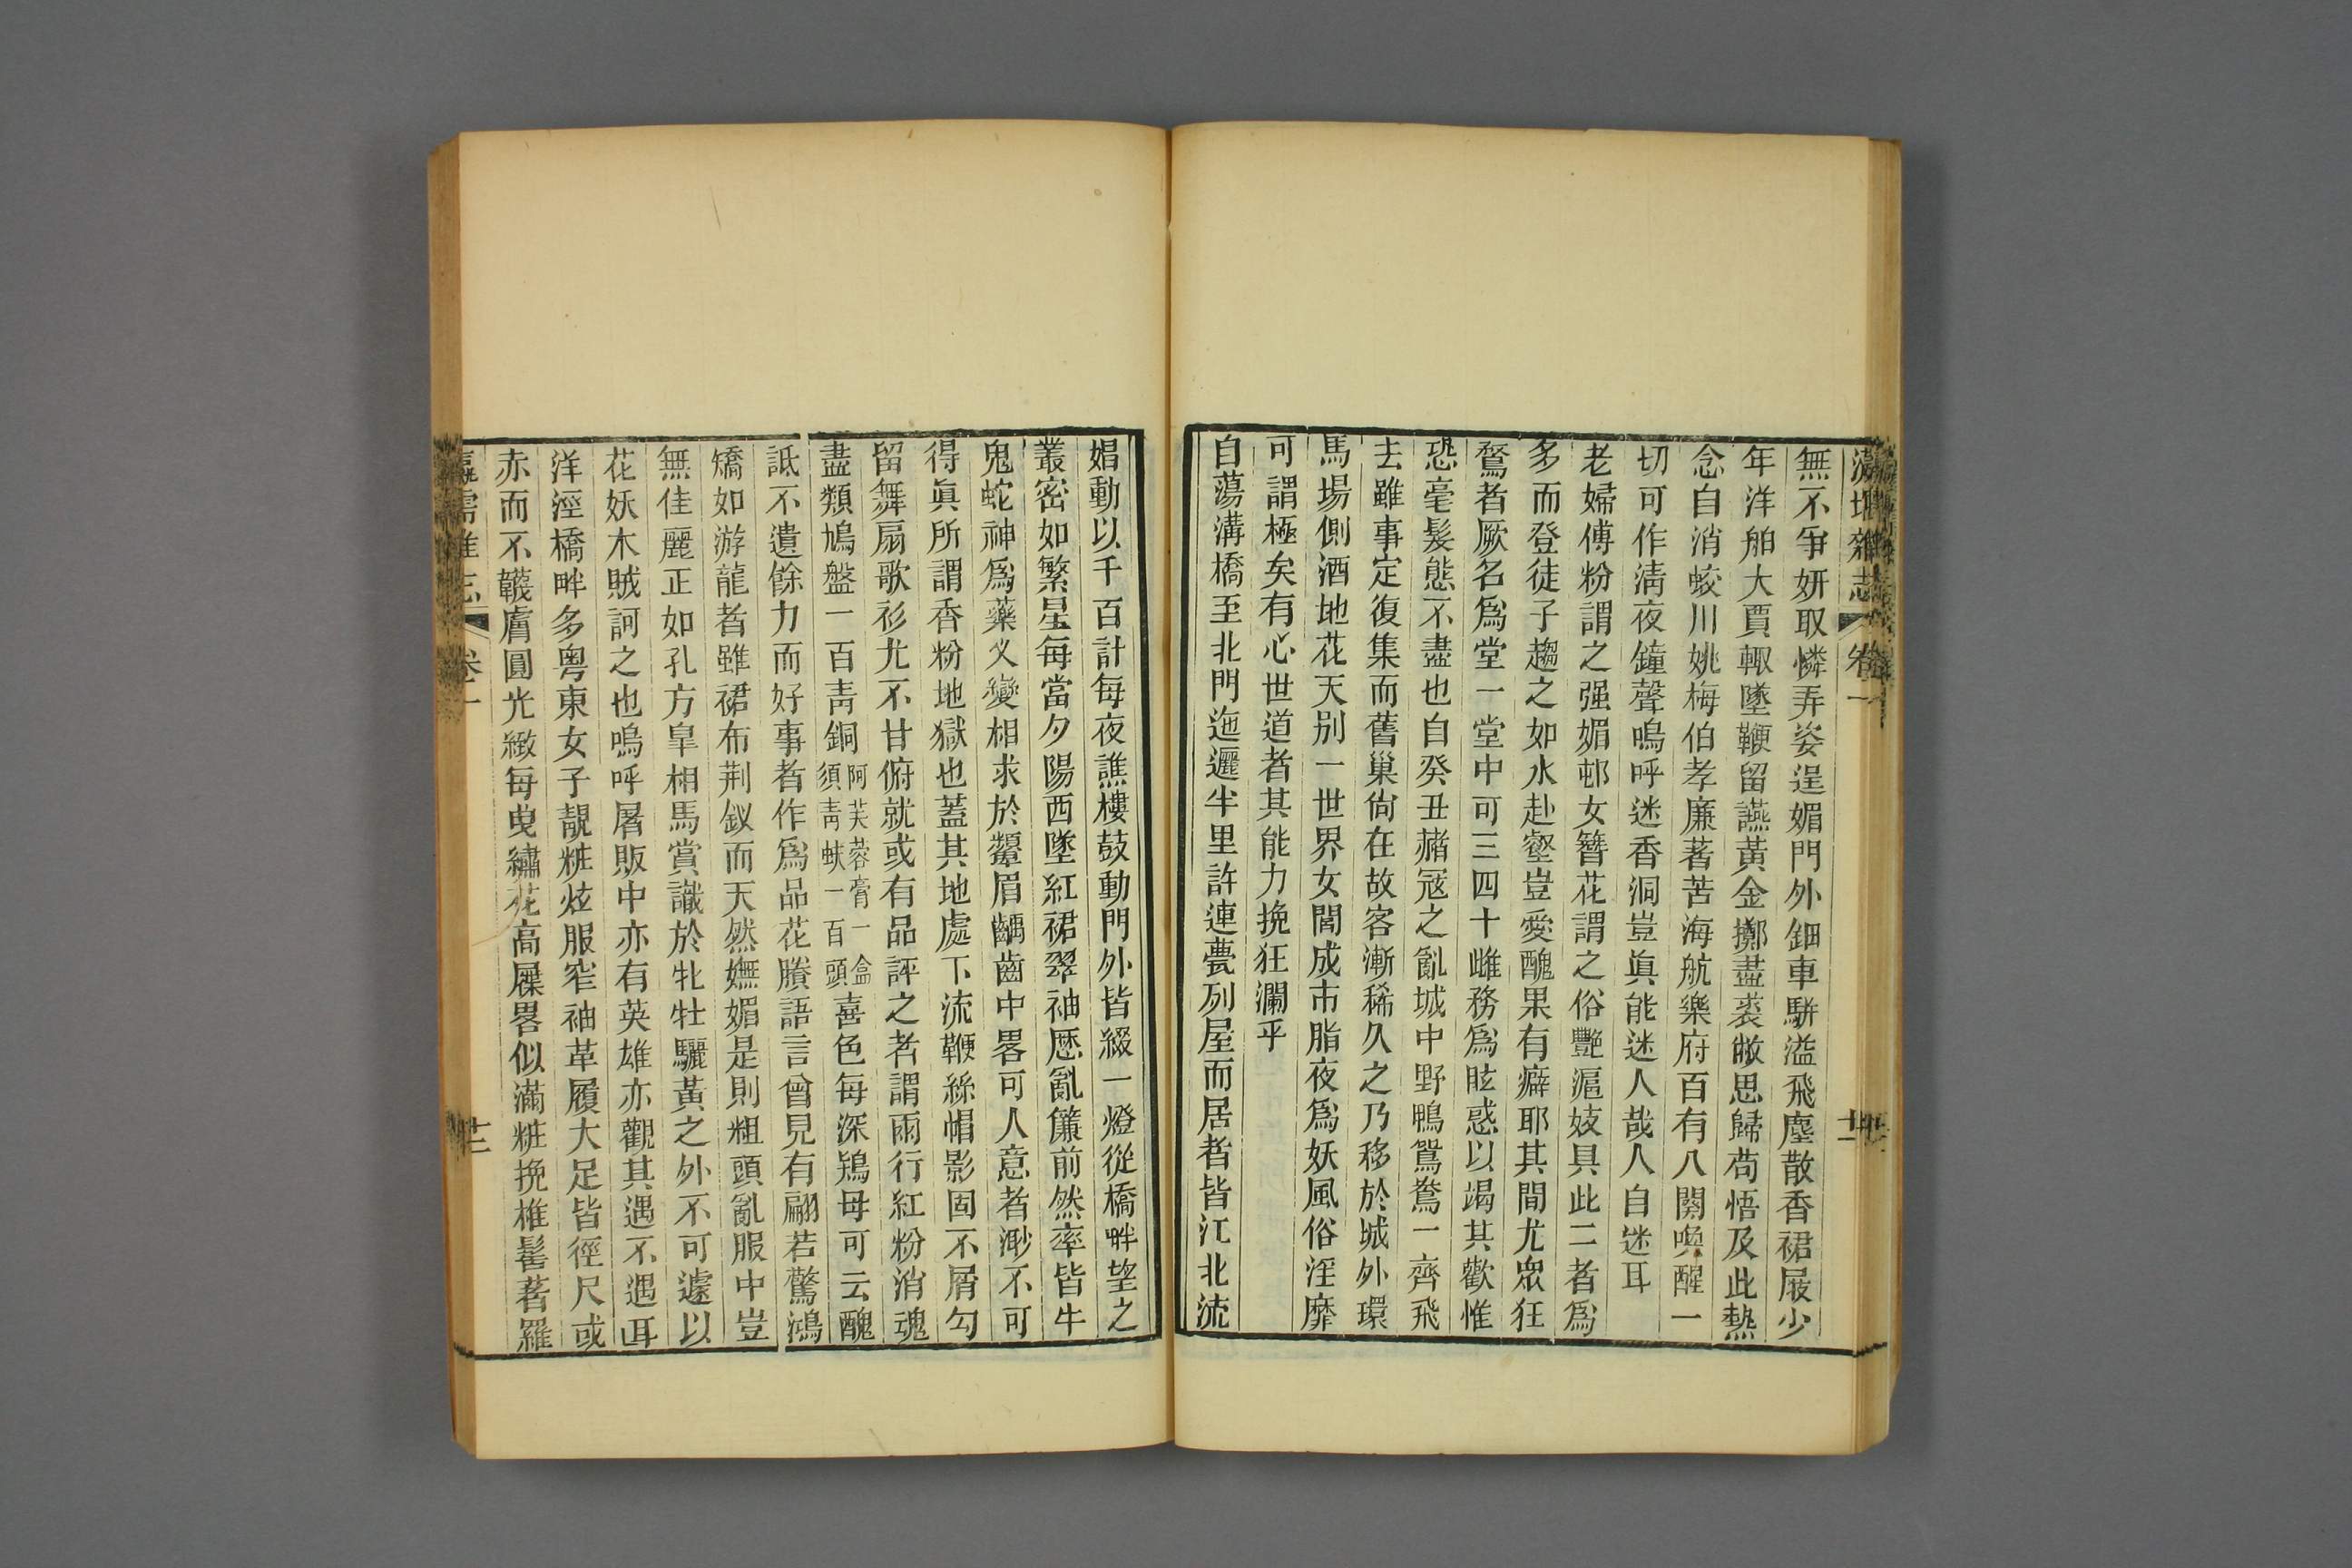 瀛壖雜志 卷一
無不爭妍取憐弄姿逞媚門外鈿車駢溢飛塵散香裙屐少
年洋舶大賈輙墜鞭留讌黃金擲盡裘敝思歸苟悟及此熱
念自消蛟川姚梅伯孝廉著苦海航樂府百有八闋喚醒一
切可作淸夜鐘聲嗚呼迷香洞豈眞能迷人哉人自迷耳
老婦傅粉謂之强媚邨女簪花謂之俗豔滬妓具此二者爲
多而登徒子趨之如水赴壑豈愛醜果有癖耶其間尤眾狂
鶩者厥名爲堂一堂中可三四十雌務爲眩惑以竭其歡惟
恐毫髮態不盡也自癸丑赭寇之亂城中野鴨鴛鴦一齊飛
去雖事定復集而舊巢尙在故客漸稀久之乃移於城外環
馬場側酒地花天别一世界女閭成市脂夜爲妖風俗淫靡
可謂極矣有心世道者其能力挽狂瀾乎
自蕩溝橋至北門迤邐半里許連甍列屋而居者皆江北流
娼動以千百計每夜譙樓鼓動門外皆綴一燈從橋畔望之
叢密如繁星每當夕陽西墜紅裙翠袖厯亂簾前然率皆牛
鬼蛇神爲藥乂變相求於顰眉齲齒中畧可人意者渺不可
得眞所謂香粉地獄也蓋其地處下流鞭絲帽影固不屑勾
留舞扇歌衫尤不甘俯就或有品評之者謂雨行紅粉消魂
盡類鳩盤一百靑銅阿芙蓉膏一盒須靑蚨一百頭喜色每深鴉母可云醜
詆不遺餘力而好事者作爲品花賸語言曾見有翩若驚鴻
矯如游龍者雖裙布荆釵而天然嫵媚是則粗頭亂服中豈
無佳麗正如孔方臯相馬賞識於牝牡驪黃之外不可遽以
花妖木賊訶之也嗚呼屠販中亦有英雄亦觀其遇不遇耳
洋涇橋畔多粤東女子靚粧炫服窄袖革履大足皆徑尺或
赤而不韈膚圓光緻每曳繡花高屧畧似滿粧挽椎髻著羅
瀛壖雜志 卷一